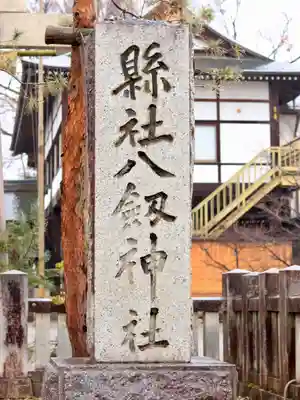 縣社八剱神社